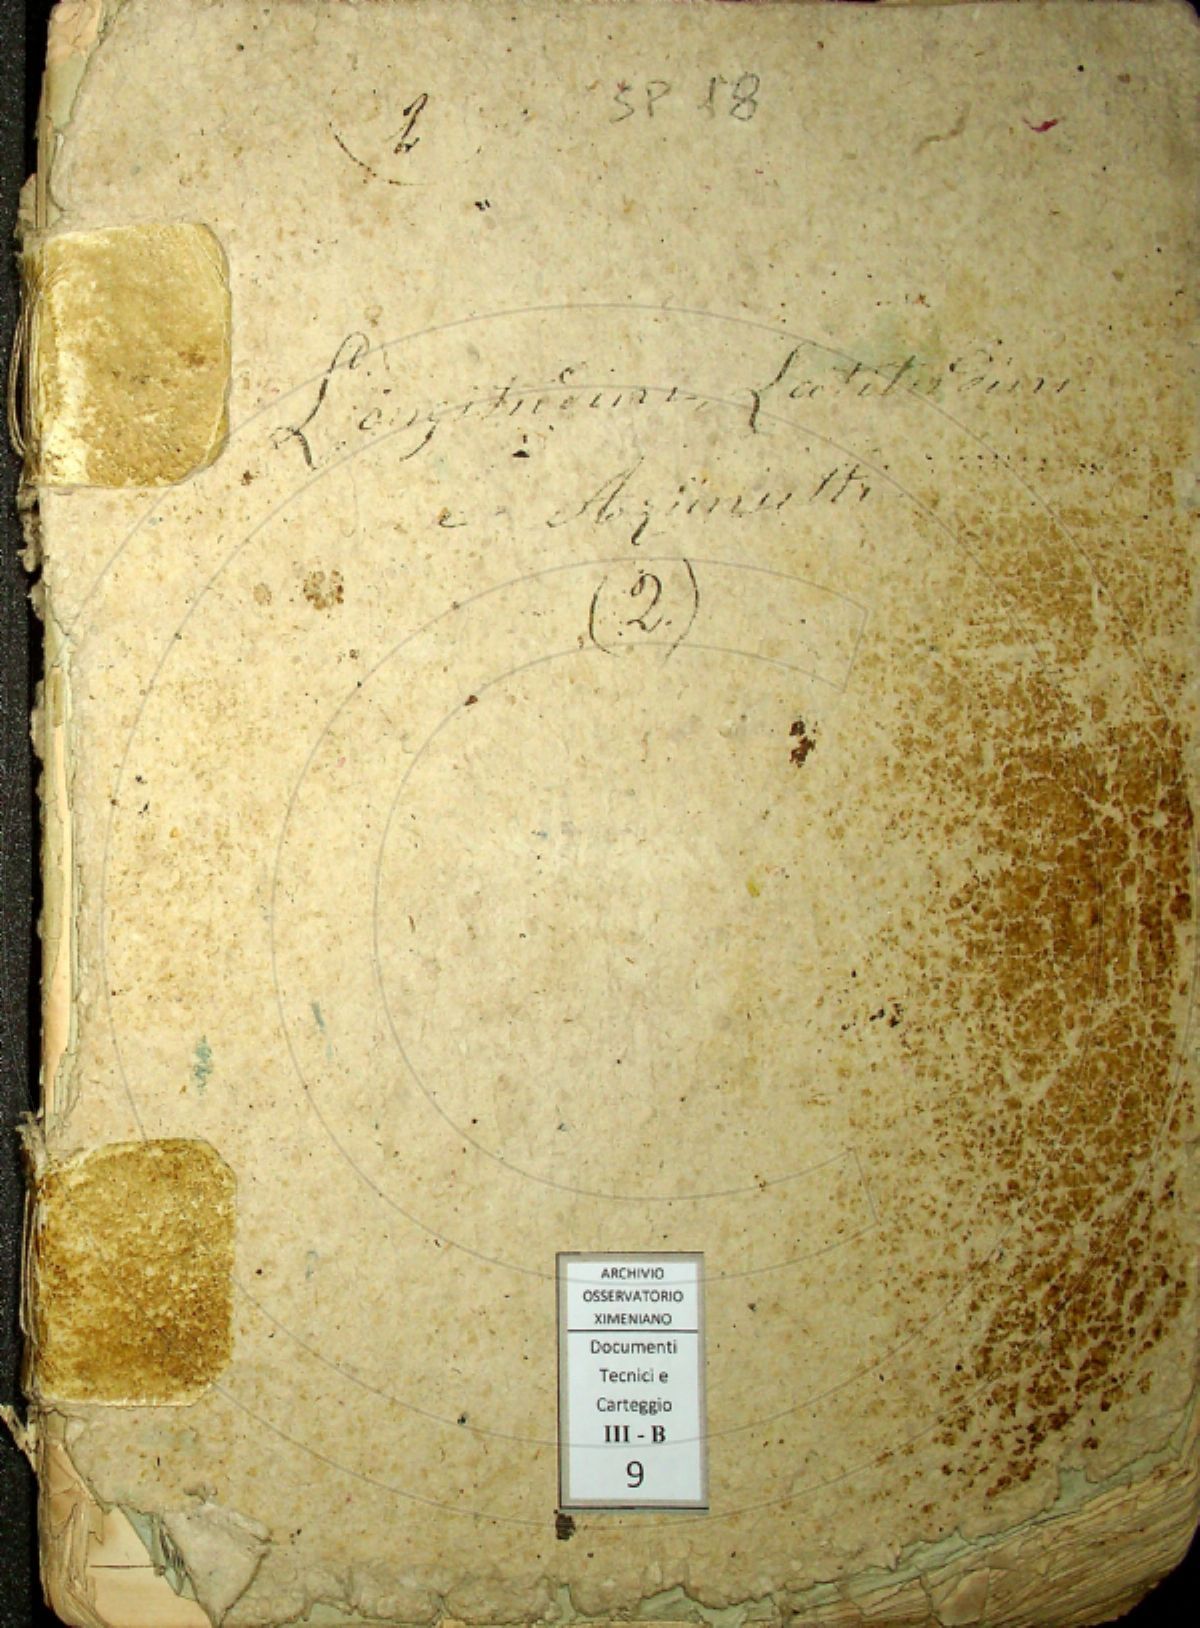 SP 18
Longitudini, Latitudini
e Azimutti
(2)
ARCHIVIO
OSSERVATORIO
XIMENIANO
Documenti
Tecnici e
Carteggio
III - B
9